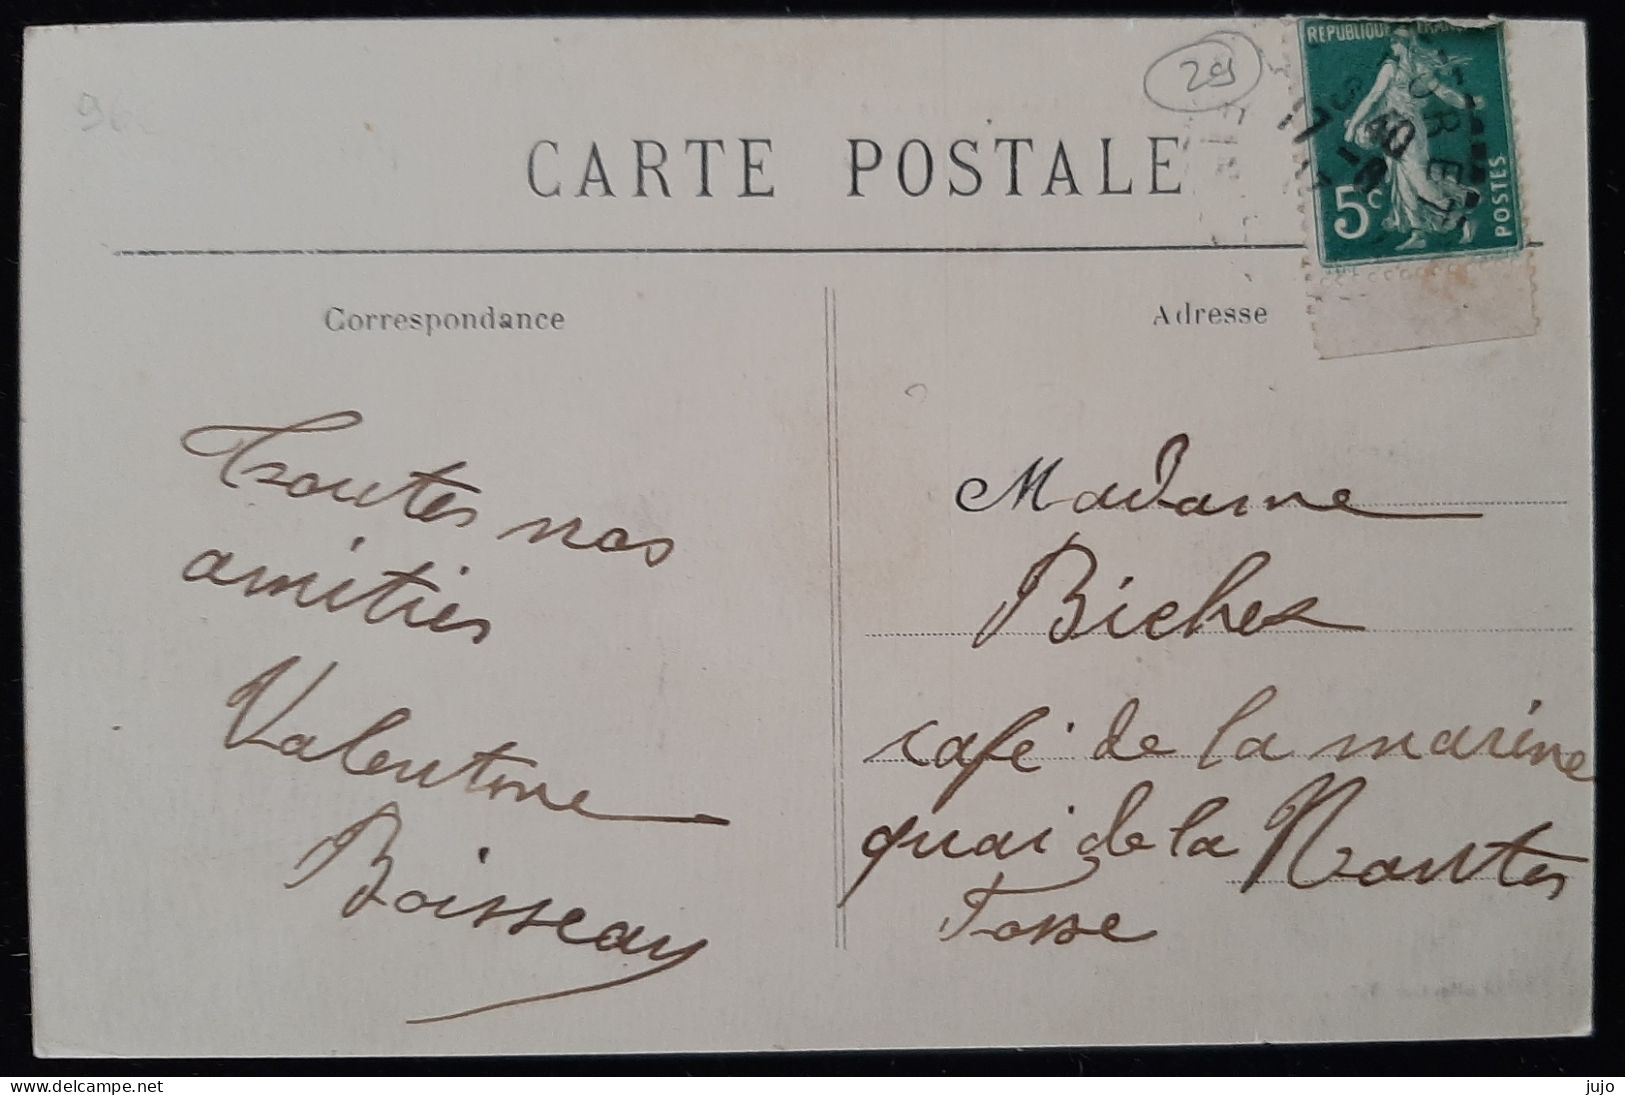 96
29
CARTE POSTALE
REPUBLIQUE FRANÇAISE
5c
POSTES
Correspondance
Adresse
Toutes nos
amitiés
Valentine
Boisseau
Madame
Biches
café de la marine
quai de la
Fosse
Nantes
delcampe.net
jujo